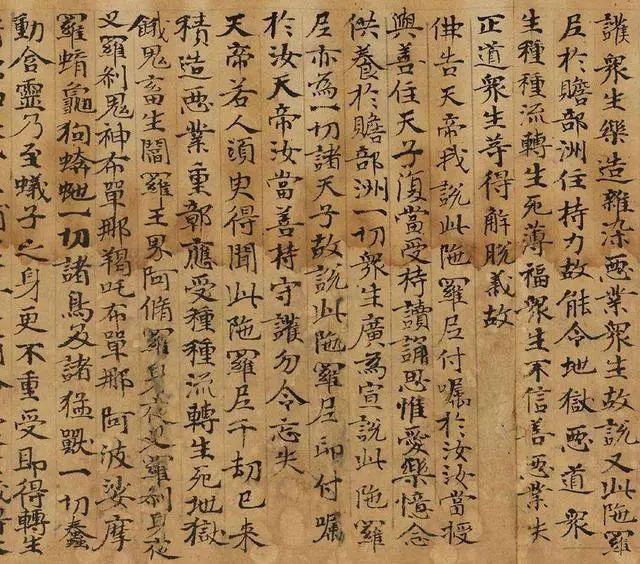 護衆生樂造雜染惡業衆生故說又此陁羅
尼於贍部洲住持力故能令地獄惡道衆
生種種流轉生死薄福衆生不信善惡業失
正道衆生等得解脫義故
佛告天帝我說此陁羅尼付囑於汝汝當授
與善住天子復當受持讀誦思惟愛樂憶念
供養於贍部洲一切衆生廣為宣說此陁羅
尼亦為一切諸天子故說此陁羅尼印付囑
於汝天帝汝當善持守護勿令忘失
天帝若人須臾得聞此陁羅尼千劫已來
積造惡業重鄣應受種種流轉生死地獄
餓鬼畜生閻羅王界阿脩羅身夜叉羅剎鬼
神布單那羯吒布單那阿波娑摩
羅蝱龜狗蟒虵一切諸鳥及諸猛獸一切蠢
動含靈乃至蟻子之身更不重受即得轉生